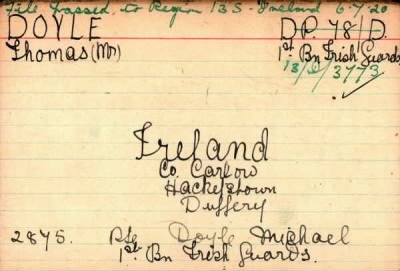 File passed to Region 13 S - Ireland 6-7-20
DOYLE
Thomas (Mr)
DP 78/D.
1st. Bn Irish Guards
13/S/3773
Ireland
Co. Carlow
Hacketstown
Duffery
2875. Pte Doyle Michael
1st Bn Irish Guards.